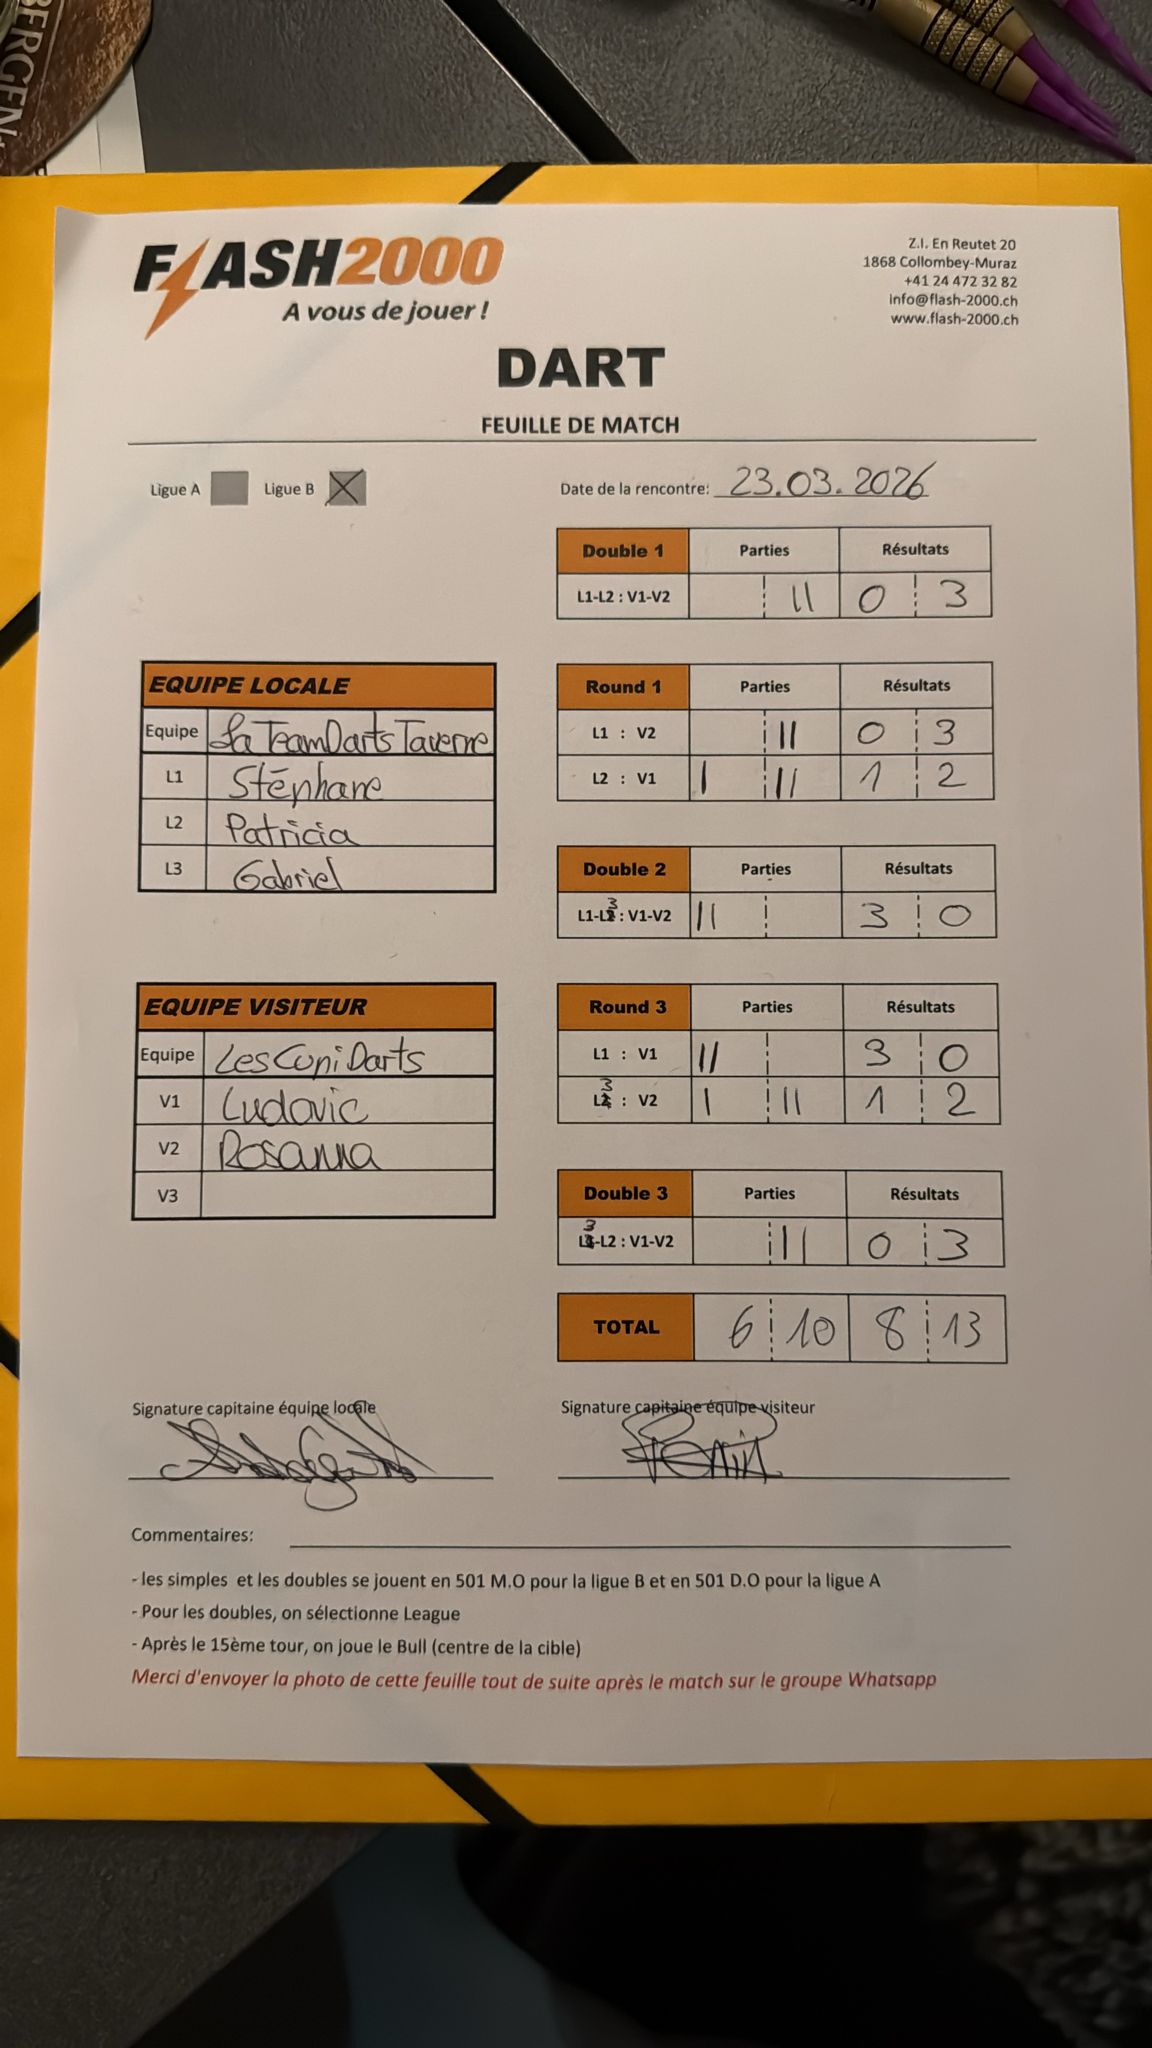 BERGEN
FLASH2000
A vous de jouer !
Z.I. En Reutet 20
1868 Collombey-Muraz
+41 24 472 32 82
info@flash-2000.ch
www.flash-2000.ch
DART
FEUILLE DE MATCH
Ligue A Ligue B X
Date de la rencontre: 23.03.2026
Double 1 Parties Résultats
L1-L2 : V1-V2 || 0 3
EQUIPE LOCALE
Equipe La TeamDartsTaverne
L1 Stéphane
L2 Patricia
L3 Gabriel
Round 1 Parties Résultats
L1 : V2 || 0 3
L2 : V1 | || 1 2
Double 2 Parties Résultats
L1-L3 : V1-V2 || 3 0
EQUIPE VISITEUR
Equipe Les CuniDarts
V1 Ludovic
V2 Rosanna
V3
Round 3 Parties Résultats
L1 : V1 || 3 0
L3 : V2 | || 1 2
Double 3 Parties Résultats
L3-L2 : V1-V2 || 0 3
TOTAL 6 10 8 13
Signature capitaine équipe locale
Signature capitaine équipe visiteur
Commentaires:
- les simples et les doubles se jouent en 501 M.O pour la ligue B et en 501 D.O pour la ligue A
- Pour les doubles, on sélectionne League
- Après le 15ème tour, on joue le Bull (centre de la cible)
Merci d'envoyer la photo de cette feuille tout de suite après le match sur le groupe Whatsapp